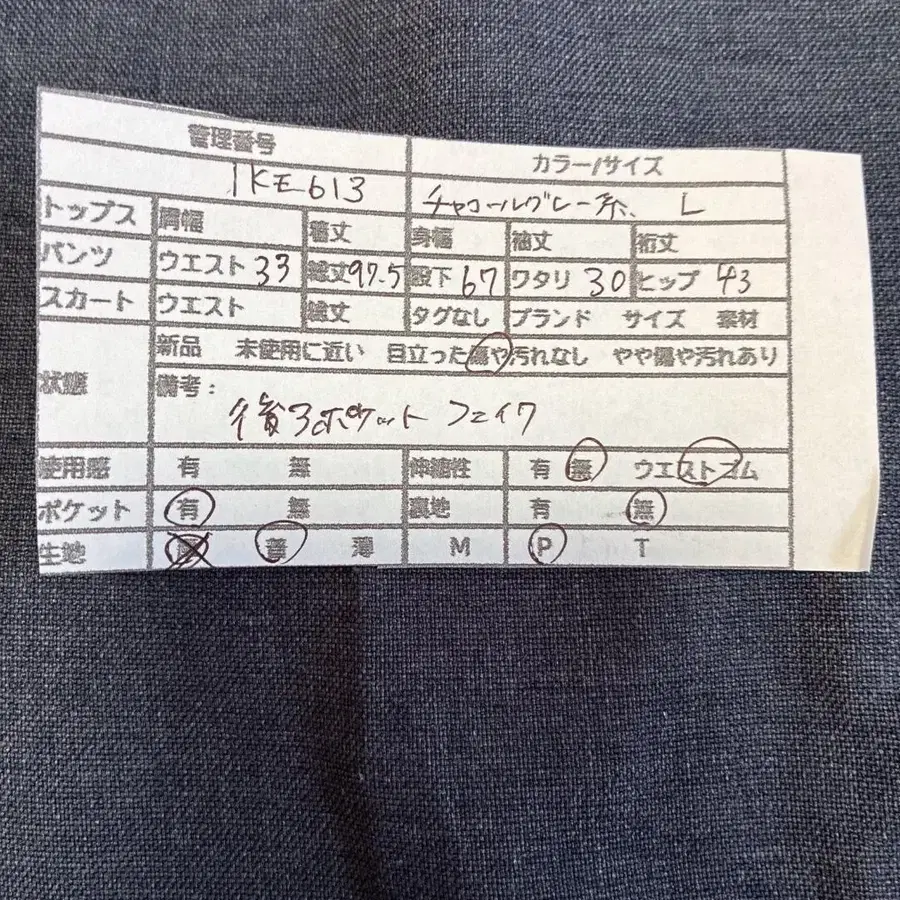 管理番号 カラー/サイズ
1KE613 チャコールグレー系、 L
トップス 肩幅 着丈 身幅 袖丈 裄丈
パンツ ウエスト 33 総丈 97.5 股下 67 ワタリ 30 ヒップ 43
スカート ウエスト 総丈 タグなし ブランド サイズ 素材
状態 新品 未使用に近い 目立った傷や汚れなし やや傷や汚れあり
備考：
後ろポケット フェイク
使用感 有 無 伸縮性 有 無 ウエストゴム
ポケット 有 無 裏地 有 無
生地 厚 普 薄 M P T